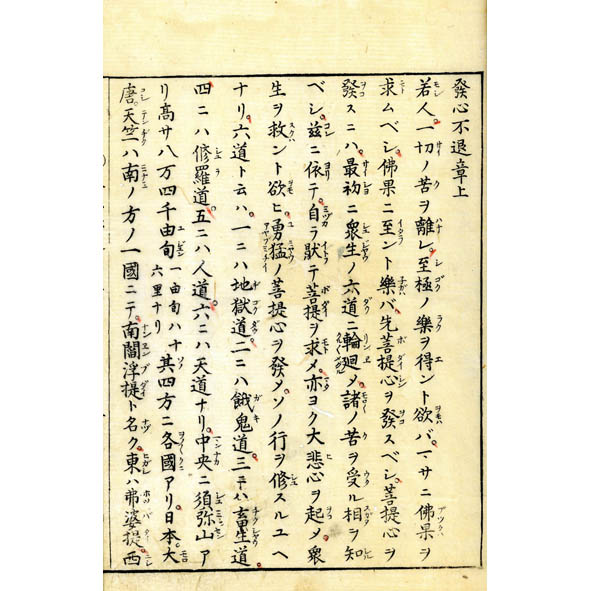 發心不退章上
若人一切ノ苦ヲ離レ至極ノ樂ヲ得ント欲バマサニ佛果ヲ
求ムベシ佛果ニ至ント樂バ先菩提心ヲ發スベシ菩提心ヲ
發スニハ最初ニ衆生ノ六道ニ輪廻メ諸ノ苦ヲ受ル相ヲ知
ベシ茲ニ依テ自ラ猒テ菩提ヲ求メ亦ヨク大悲心ヲ起メ衆
生ヲ救ント欲ヒ勇猛ノ菩提心ヲ發メソノ行ヲ修スルユヘ
ナリ六道ト云ハ一ニハ地獄道二ニハ餓鬼道三ニハ畜生道
四ニハ修羅道五ニハ人道六ニハ天道ナリ中央ニ須弥山ア
リ高サ八万四千由旬一由旬ハ十六里ナリ其四方ニ各國アリ日本大
唐天竺ハ南ノ方ノ一國ニテ南閻浮提ト名ク東ハ弗婆提西